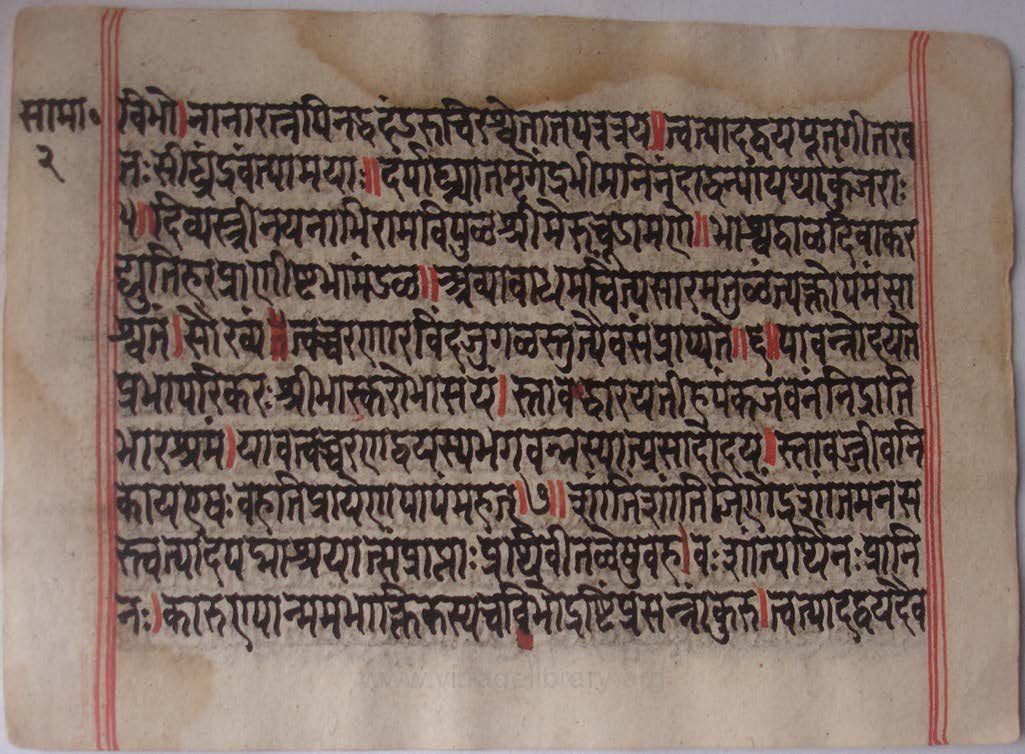 सामा॰
२
विभो। नानारात्नपिनद्धदंडरुचिरश्वेतातपत्रत्रय॥ त्वत्पादद्वयपूतगीतरव
तः सीघ्रंद्रवंत्यामयाः॥ दर्पाध्मातमृगेंद्रभीमनिनंदाद्वन्यायथाकुंजराः
५॥ दिव्यस्त्रीनयनाभिरामविपुळश्रीमेरुचूडामणे॥ भाश्वद्वाळदिवाकर
द्युतिहरंप्राणीष्टभामंडळ॥ अव्यावाधमचिंत्यसारमतुळंत्यक्तोपमंसा
श्वतं। सौरव्यं॥ त्वच्चरणारविंदजुगळस्तुत्यैवसंप्राप्यते॥ ६॥ यावन्नोदयते
प्रभापरिकरः श्रीभास्करोभासयं। स्तावद्धारयतीहपंकजवनंनिद्राति
भारश्रमं। यावत्वच्चरणद्वयस्यभगवन्नस्यात्प्रसादोदय। स्तावज्जीवनि
कायएषः वहतिप्रायेणपापंमहत्। ७॥ शांतिशांतिजिणेंद्रशांतमनस
स्त्वत्पादपद्माश्रयात्संप्राप्ताः पृथिवीतळेषुवह। वः शांत्यर्थिनः प्रानि
नः। कारुण्यान्ममभाक्तिकस्यचविभोद्रष्टिंप्रसंन्नांकुरु। त्वत्पादद्वयदैव